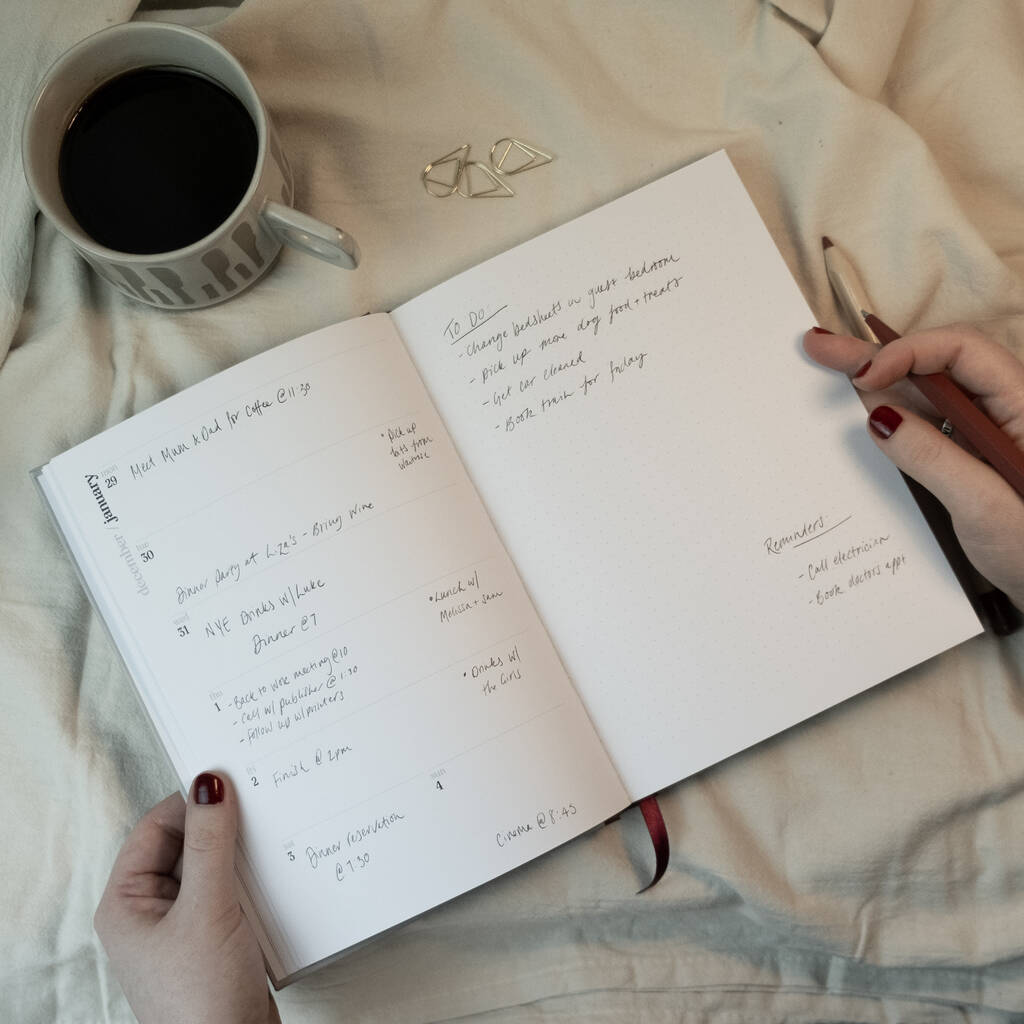 december / january
mon
29
Meet Mum & Dad for Coffee @ 11:30
• Pick up
bits from
Waitrose
tue
30
Dinner Party at Liza's - Bring Wine
wed
31
NYE Drinks w/ Luke
Dinner @ 7
• Lunch w/
Melissa + Sam
thu
1
- Back to work meeting @ 10
- Call w/ publisher @ 1:30
- Follow up w/ printers
• Drinks w/
the Girls
fri
2
Finish @ 2pm
sat
3
Dinner reservation
@ 7:30
sun
4
Cinema @ 8:45
TO DO:
- Change bedsheets in guest bedroom
- Pick up more dog food + treats
- Get car cleaned
- Book train for friday
Reminders:
- Call electrician
- Book doctors appt